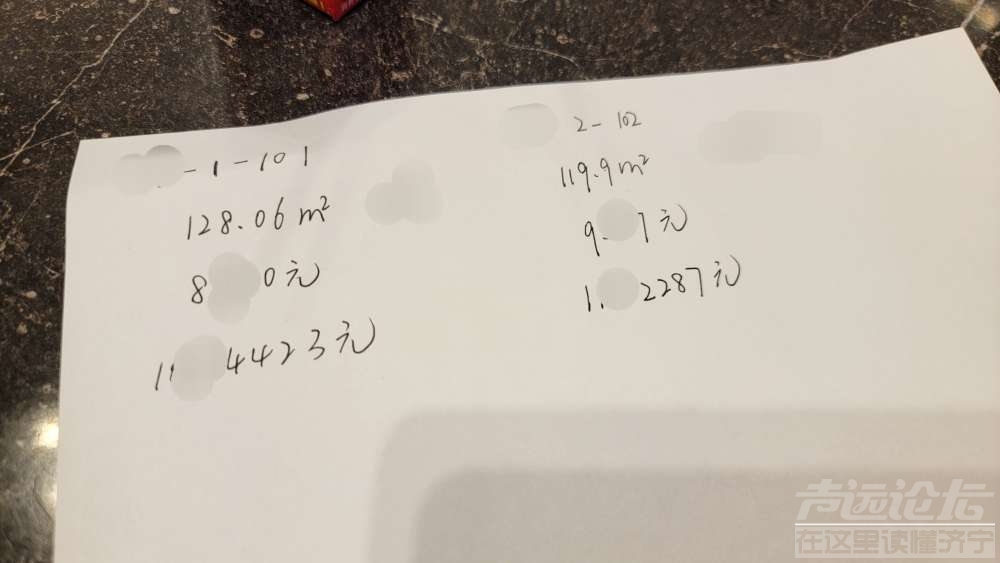 -1-101
128.06m²
8 0元
11 4423元
2-102
119.9m²
9. 7元
1. 2287元
声远论坛
在这里读懂济宁